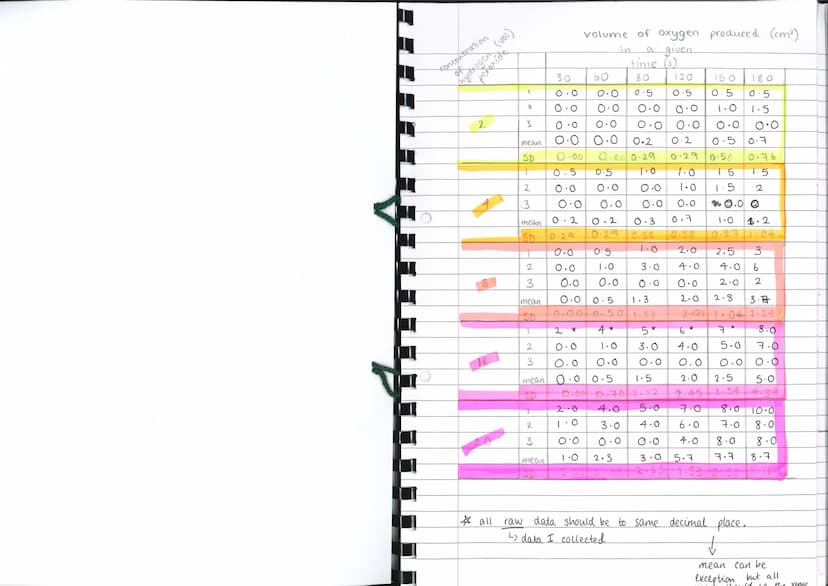 volume of oxygen produced (cm³)
in a given
time (s)
concentration
of
hydrogen
peroxide (vol)
30 60 80 120 150 180
1 0.0 0.0 0.5 0.5 0.5 0.5
2 0.0 0.0 0.0 0.0 1.0 1.5
2
3 0.0 0.0 0.0 0.0 0.0 0.0
mean 0.0 0.0 0.2 0.2 0.5 0.7
SD 0.00 0.00 0.29 0.29 0.50 0.76
1 0.5 0.5 1.0 1.0 1.5 1.5
2 0.0 0.0 0.0 1.0 1.5 2
4
3 0.0 0.0 0.0 0.0 0.0 0
mean 0.2 0.2 0.3 0.7 1.0 1.2
SD 0.29 0.29 0.58 0.58 0.87 1.04
1 0.0 0.5 1.0 2.0 2.5 3
2 0.0 1.0 3.0 4.0 4.0 6
8
3 0.0 0.0 0.0 0.0 2.0 2
mean 0.0 0.5 1.3 2.0 2.8 3.7
SD 0.00 0.50 1.04
1 2* 4* 5* 6* 7* 8.0
2 0.0 1.0 3.0 4.0 5.0 7.0
16
3 0.0 0.0 0.0 0.0 0.0 0.0
mean 0.0 0.5 1.5 2.0 2.5 5.0
SD 0.70
1 2.0 4.0 5.0 7.0 8.0 10.0
2 1.0 3.0 4.0 6.0 7.0 8.0
20
3 0.0 0.0 0.0 4.0 8.0 8.0
mean 1.0 2.3 3.0 5.7 7.7 8.7
SD 1.53
☆ all raw data should be to same decimal place.
↳ data I collected
mean can be
exception but all